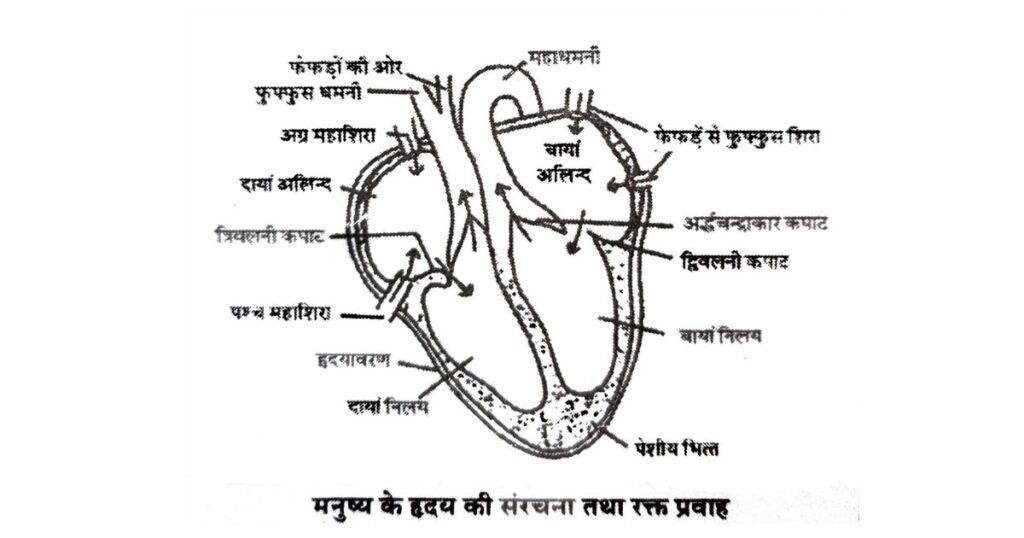 फेफड़ों की ओर
महाधमनी
फुफ्फुस धमनी
अग्र महाशिरा
फेफड़ें से फुफ्फुस शिरा
बायां
अलिन्द
दायां अलिन्द
अर्द्धचन्द्राकार कपाट
त्रिवलनी कपाट
द्विवलनी कपाट
पश्च महाशिरा
बायां निलय
हृदयावरण
दायां निलय
पेशीय भित्त
मनुष्य के हृदय की संरचना तथा रक्त प्रवाह